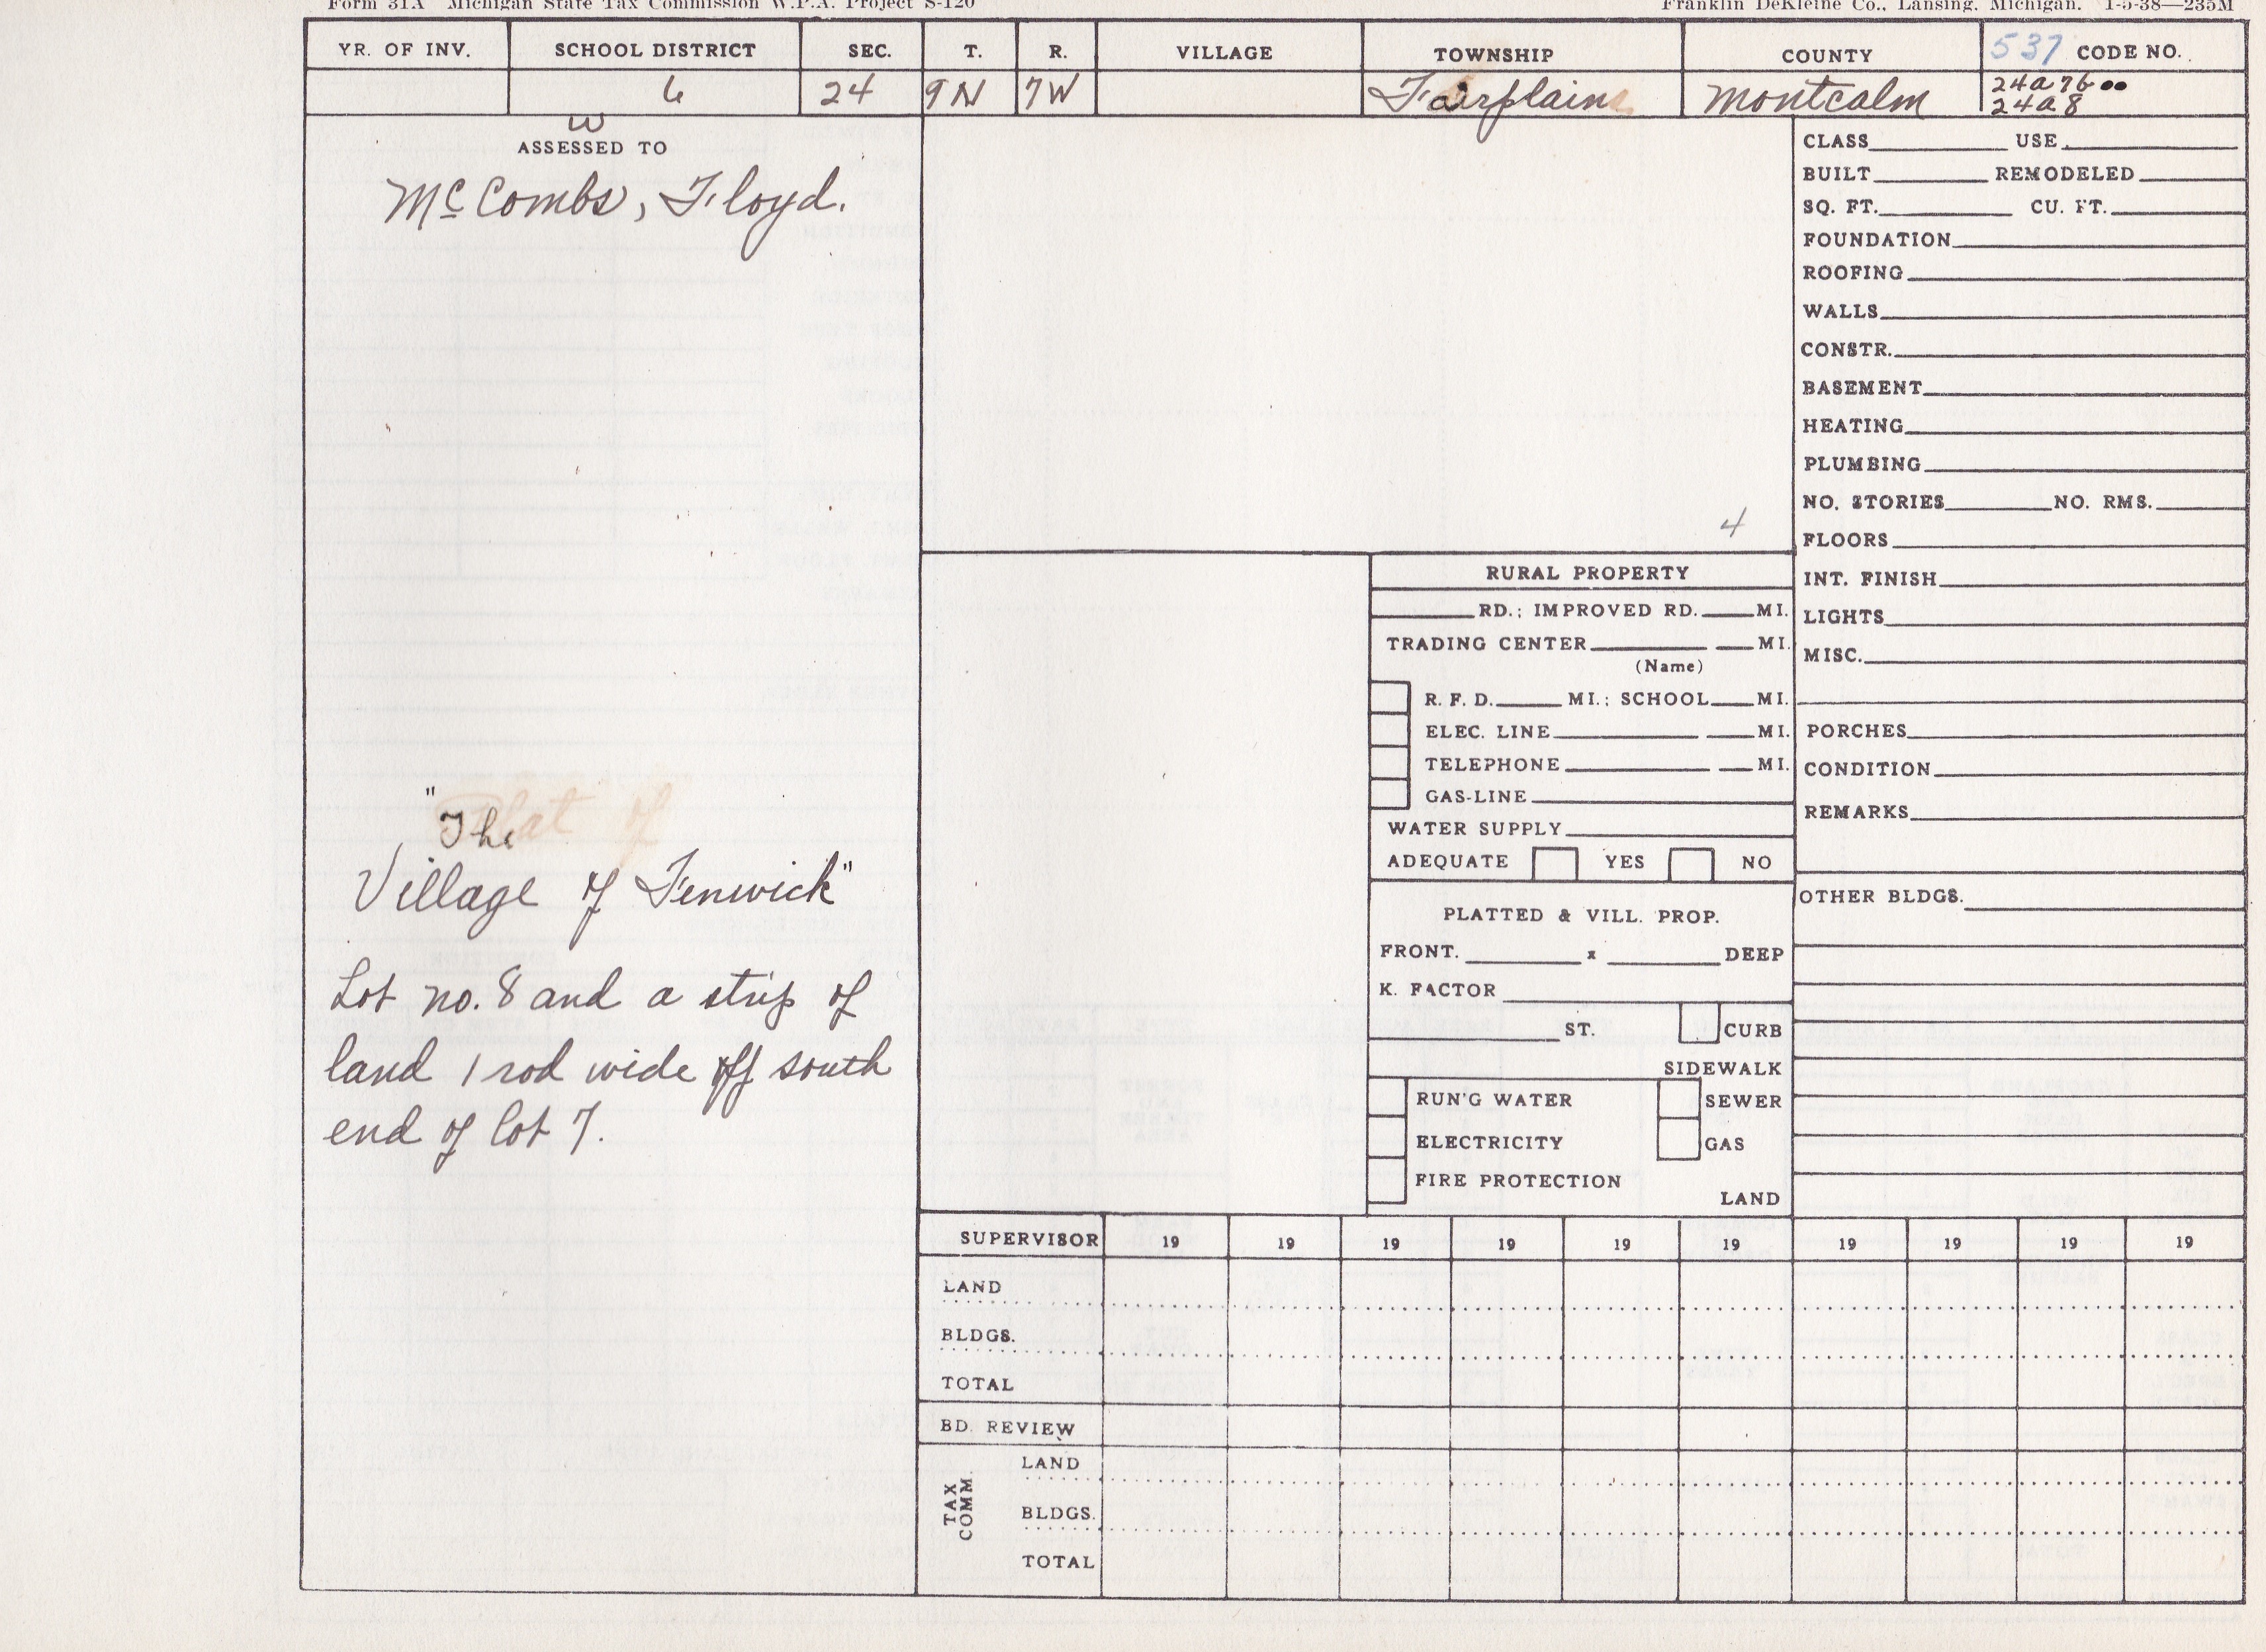 Form 31A Michigan State Tax Commission W.P.A. Project S-120
Franklin DeKleine Co., Lansing, Michigan. 1-5-38—235M
YR. OF INV. SCHOOL DISTRICT SEC. T. R. VILLAGE TOWNSHIP COUNTY 537 CODE NO.
6 24 9N 7W Fairplain Montcalm 24a7b••
24a8
w
ASSESSED TO
McCombs, Floyd.
"The
Village of Fenwick"
Lot no. 8 and a strip of
land 1 rod wide off south
end of lot 7.
4
RURAL PROPERTY
RD.; IMPROVED RD. MI.
TRADING CENTER MI.
(Name)
R. F. D. MI.; SCHOOL MI.
ELEC. LINE MI.
TELEPHONE MI.
GAS-LINE
WATER SUPPLY
ADEQUATE YES NO
PLATTED & VILL. PROP.
FRONT. x DEEP
K. FACTOR
ST. CURB
SIDEWALK
RUN'G WATER SEWER
ELECTRICITY GAS
FIRE PROTECTION
LAND
CLASS USE
BUILT REMODELED
SQ. FT. CU. FT.
FOUNDATION
ROOFING
WALLS
CONSTR.
BASEMENT
HEATING
PLUMBING
NO. STORIES NO. RMS.
FLOORS
INT. FINISH
LIGHTS
MISC.
PORCHES
CONDITION
REMARKS
OTHER BLDGS.
SUPERVISOR 19 19 19 19 19 19 19 19 19 19
LAND
BLDGS.
TOTAL
BD. REVIEW
TAX COMM.
LAND
BLDGS.
TOTAL